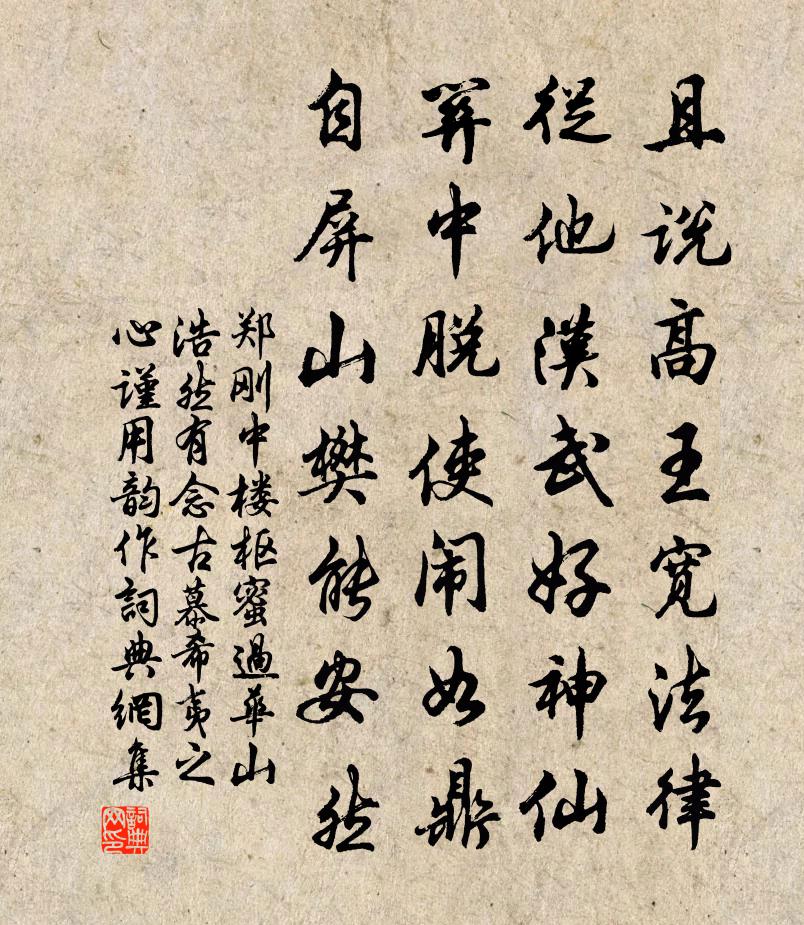 且说高王宽法律
從他漢武好神仙
羿中脱使闹如鼎
自屏山樊能安然
郑刚中楼枢蜜過華山
浩然有念古慕希夷之
心謹用韵作詞典網集
詞典网印